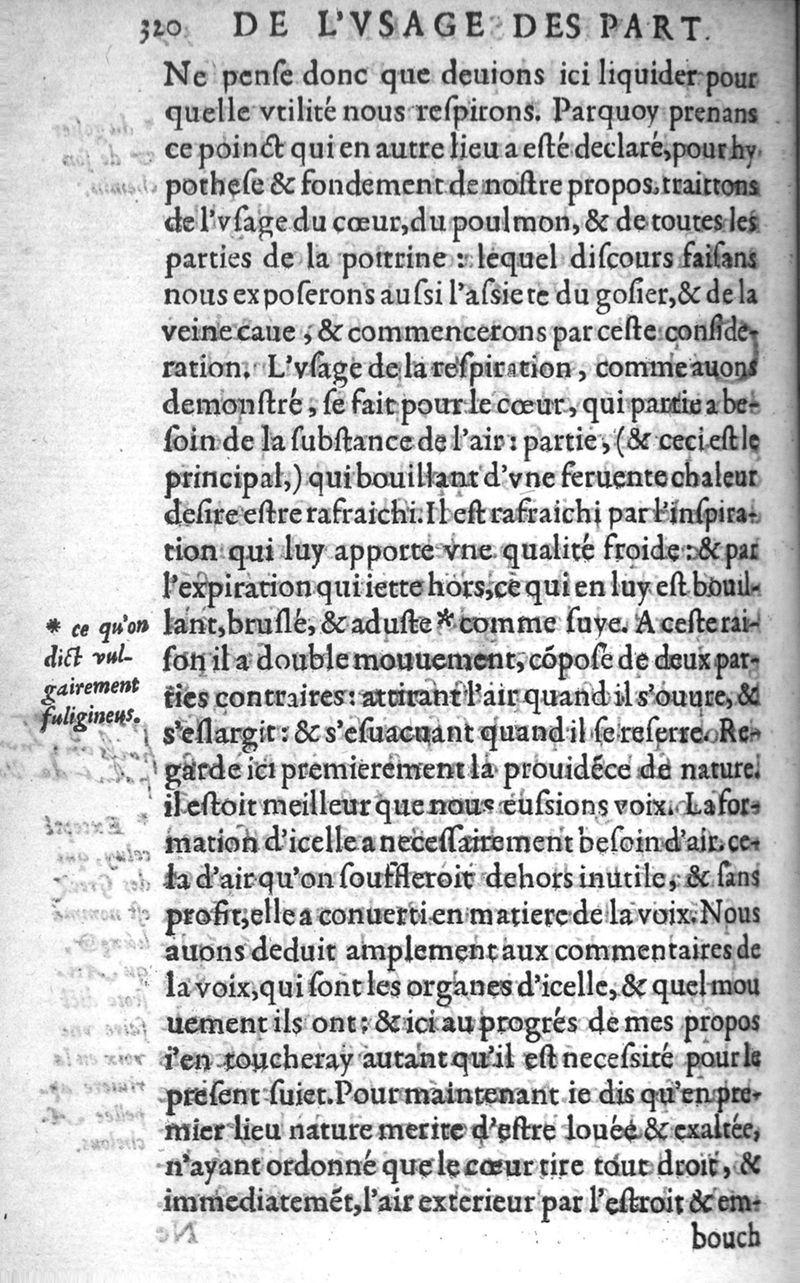 320 DE L'VSAGE DES PART.
Ne penſe donc que deuions ici liquider pour
quelle vtilité nous reſpirons. Parquoy prenans
ce poinct qui en autre lieu a eſté declaré, pour hy
potheſe & fondement de noſtre propos, traittons
de l'vſage du cœur, du poulmon, & de toutes les
parties de la poitrine : lequel diſcours faiſans
nous expoſerons auſsi l'aſsiete du goſier, & de la
veine caue, & commencerons par ceſte conſide-
ration. L'vſage de la reſpiration, comme auons
demonſtré, ſe fait pour le cœur, qui partie a be-
ſoin de la ſubſtance de l'air : partie, (& ceci eſt le
principal,) qui bouillant d'vne feruente chaleur
deſire eſtre rafraichi. Il eſt rafraichi par l'inſpira-
tion qui luy apporte vne qualité froide : & par
l'expiration qui iette hors, ce qui en luy eſt bouil-
lant, bruſlé, & aduſte * comme ſuye. A ceſte rai-
* ce qu'on
dict vul-
gairement
fuligineus.
ſon il a double mouuement, cōpoſé de deux par-
ties contraires : attirant l'air quand il s'ouure, &
s'eſlargit : & s'eſuacuant quand il ſe reſerre. Re-
garde ici premierement la prouidēce de nature.
il eſtoit meilleur que nous euſsions voix. La for-
mation d'icelle a neceſſairement beſoin d'air. ce-
la d'air qu'on ſouffleroit dehors inutile, & ſans
profit, elle a conuerti en matiere de la voix. Nous
auons deduit amplement aux commentaires de
la voix, qui ſont les organes d'icelle, & quel mou
uement ils ont : & ici au progrés de mes propos
i'en toucheray autant qu'il eſt neceſsité pour le
preſent ſuiet. Pour maintenant ie dis qu'en pre-
mier lieu nature merite d'eſtre louée & exaltée,
n'ayant ordonné que le cœur tire tout droit, &
immediatemēt, l'air exterieur par l'eſtroit & em-
bouch